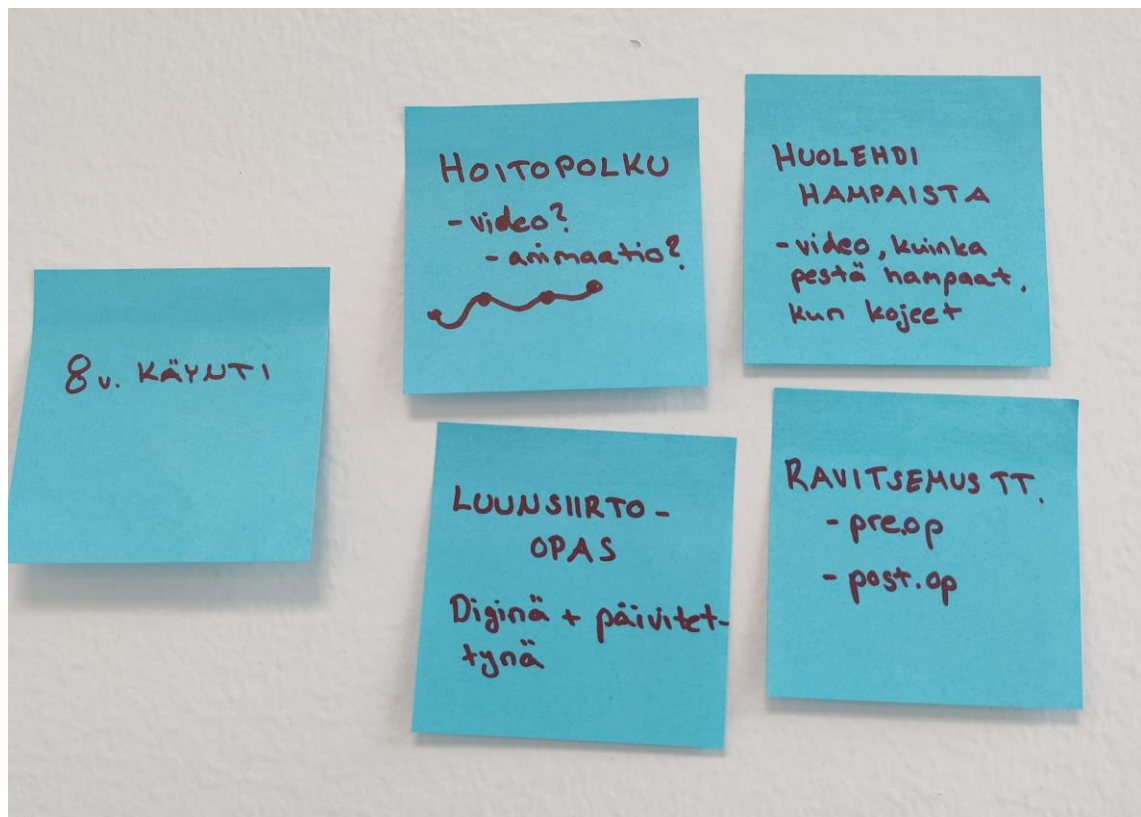 8 v. KÄYNTI
HOITOPOLKU
- video?
- animaatio?
HUOLEHDI
HAMPAISTA
- video, kuinka
pestä hampaat,
kun kojeet
LUUNSIIRTO -
OPAS
Diginä + päivitet-
tynä
RAVITSEMUS TT.
- pre.op
- post.op